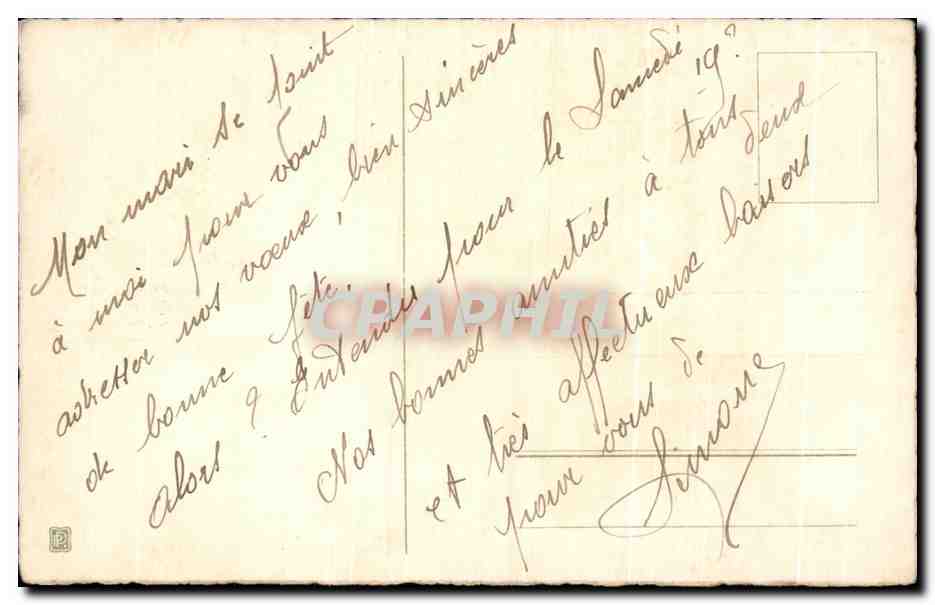 Mon mari se joint
à moi pour vous
adresser nos vœux, bien sincères
de bonne fête.
alors ? Entendu pour le Samedi 19 ?
Nos bonnes amitiés à tous deux
et très affectueux baisers
pour vous de
Simone
CPAPHIL